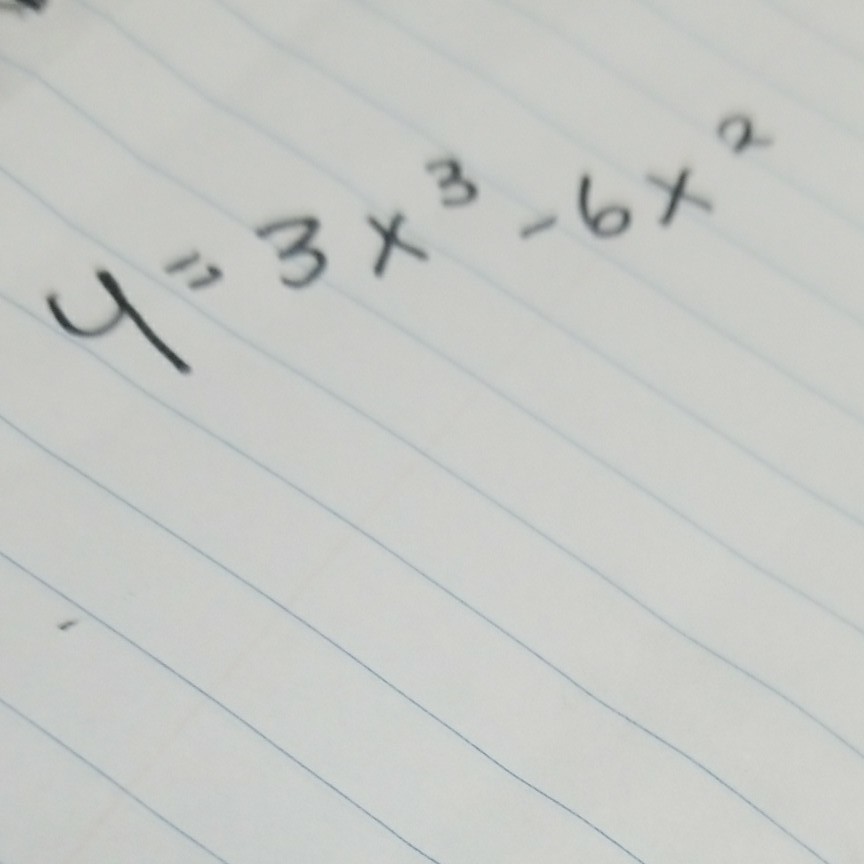 y = 3x³ - 6x²